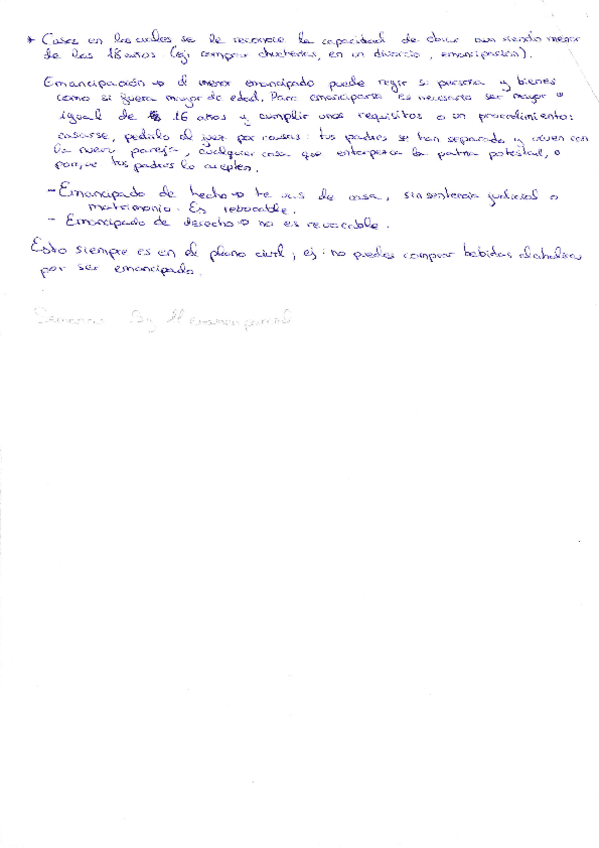 * Casos en los cuales se le reconoce la capacidad de obrar aun siendo menor
de los 18 años (ej: comprar chucherías, en un divorcio, emancipación).
Emancipación → el menor emancipado puede regir su persona y bienes
como si fuera mayor de edad. Para emanciparse es necesario ser mayor o
igual de 16 años y cumplir unos requisitos o un procedimiento:
casarse, pedirlo al juez por causas: tus padres se han separado y viven con
la nueva pareja, cualquier cosa que entorpezca la patria potestad, o
porque tus padres lo acepten.
- Emancipado de hecho → te vas de casa, sin sentencia judicial o
matrimonio. Es revocable.
- Emancipado de derecho → no es revocable.
Esto siempre es en el plano civil, ej: no puedes comprar bebidas alcoholicas
por ser emancipado.